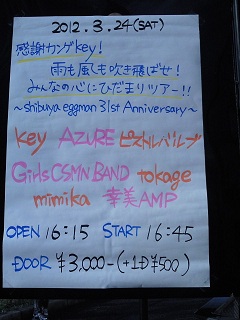 2012.3.24(SAT)
感謝カンゲkey!
雨も風も吹き飛ばせ!
みんなの心にひだまりツアー!!
~shibuya eggman 31st Anniversary~
key AZURE ピストルバルブ
Girls CSMN BAND tokage
mimika 幸美AMP
OPEN 16:15 START 16:45
DOOR ¥3,000-(+1D ¥500)